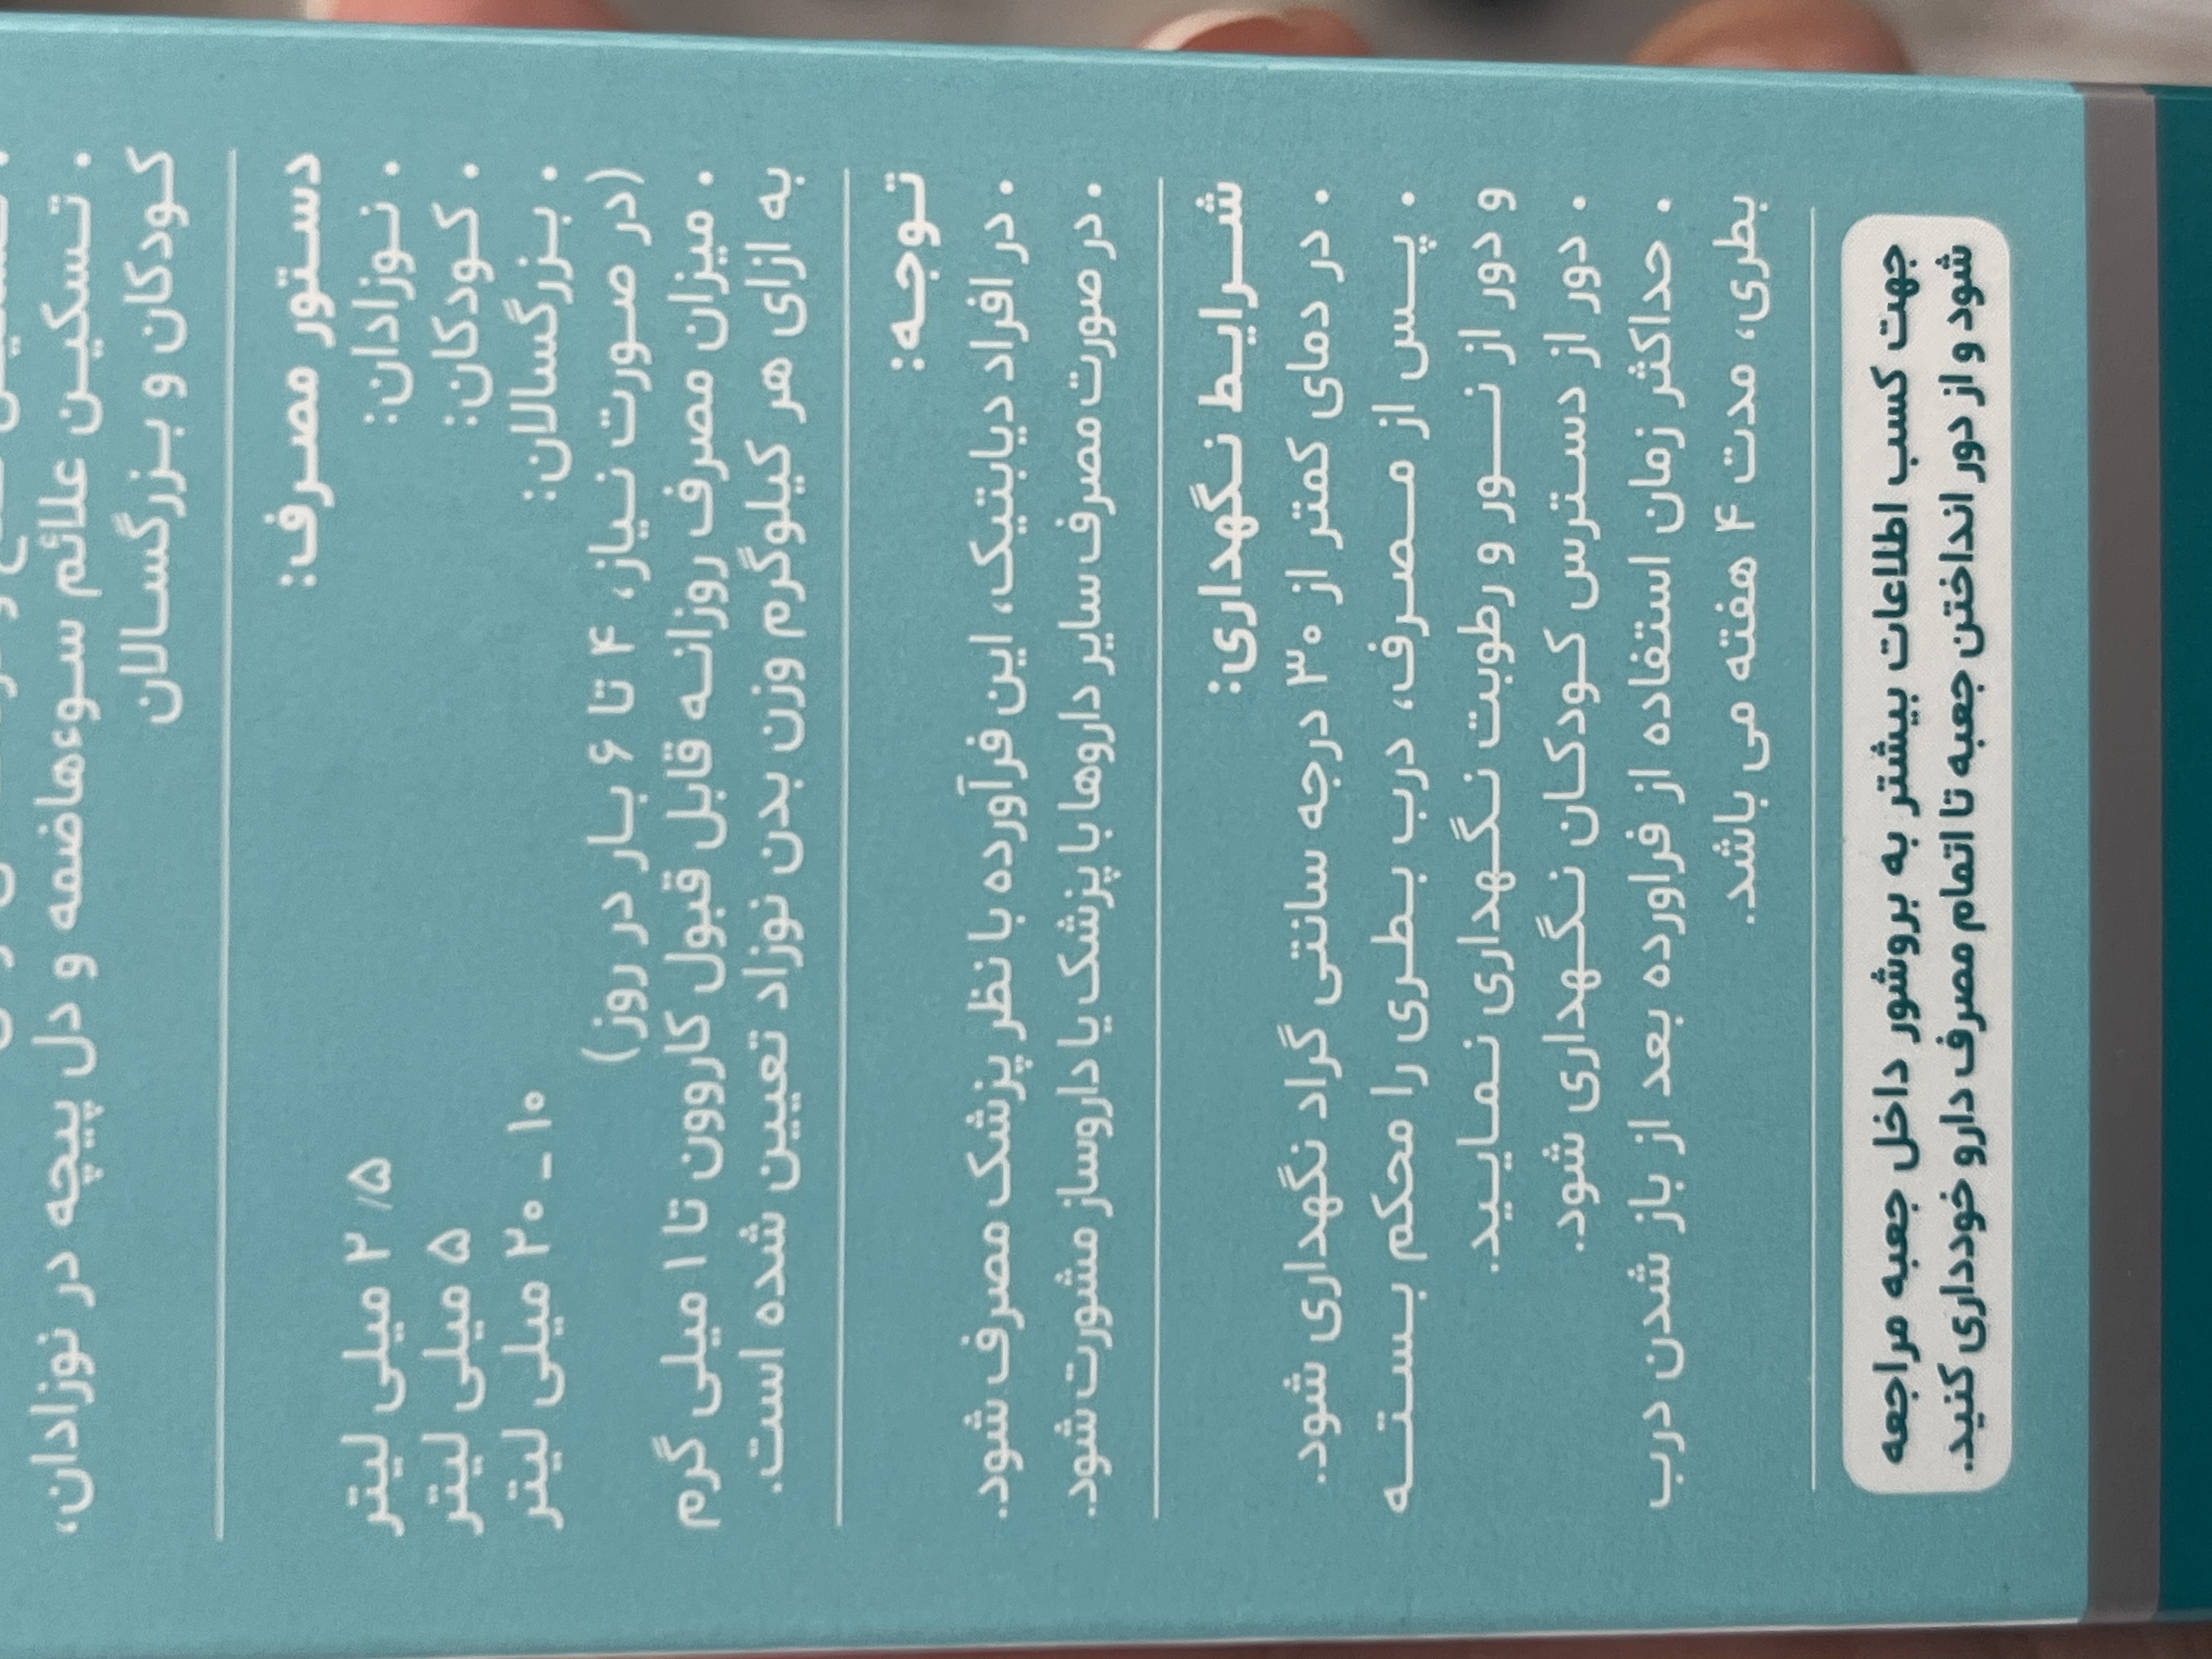 • تسکین علائم سوءهاضمه و دل پیچه در نوزادان،
کودکان و بزرگسالان
دستور مصرف:
• نوزادان: ۲/۵ میلی لیتر
• کودکان: ۵ میلی لیتر
• بزرگسالان: ۱۰ - ۲۰ میلی لیتر
(در صورت نیاز، ۴ تا ۶ بار در روز)
• میزان مصرف روزانه قابل قبول کاروون تا ۱ میلی گرم
به ازای هر کیلوگرم وزن بدن نوزاد تعیین شده است.
توجه:
• در افراد دیابتیک، این فرآورده با نظر پزشک مصرف شود.
• در صورت مصرف سایر داروها با پزشک یا داروساز مشورت شود.
شرایط نگهداری:
• در دمای کمتر از ۳۰ درجه سانتی گراد نگهداری شود.
• پس از مصرف، درب بطری را محکم بسته
و دور از نور و رطوبت نگهداری نمایید.
• دور از دسترس کودکان نگهداری شود.
• حداکثر زمان استفاده از فراورده بعد از باز شدن درب
بطری، مدت ۴ هفته می باشد.
جهت کسب اطلاعات بیشتر به بروشور داخل جعبه مراجعه
شود و از دور انداختن جعبه تا اتمام مصرف دارو خودداری کنید.